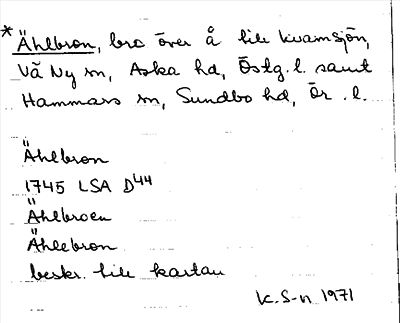 *Ählbron, bro över å till kvarnsjön,
Vä Ny sn, Aska hd, Östg. l. samt
Hammars sn, Sundbo hd, Ör. l.
Ählbron
1745 LSA D44
Ählbroen
Ählebron
beskr. till kartan
K. S-n 1971